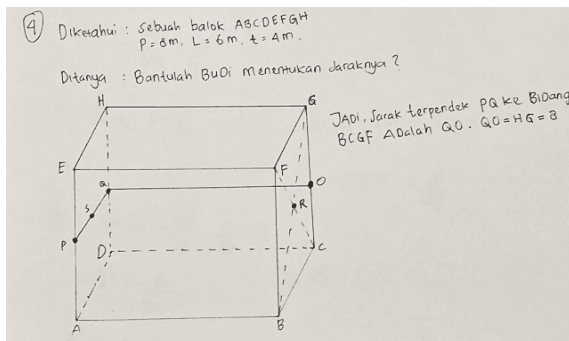 4 Diketahui : Sebuah balok ABCDEFGH
P = 8m, L = 6m, t = 4m.
Ditanya : Bantulah Budi menentukan Jaraknya ?
H
G
JADi, Jarak terpendek PQ ke BiDang
BCGF ADalah QO. QO = HG = 8
E
F
Q
O
S
R
P
D
C
A
B